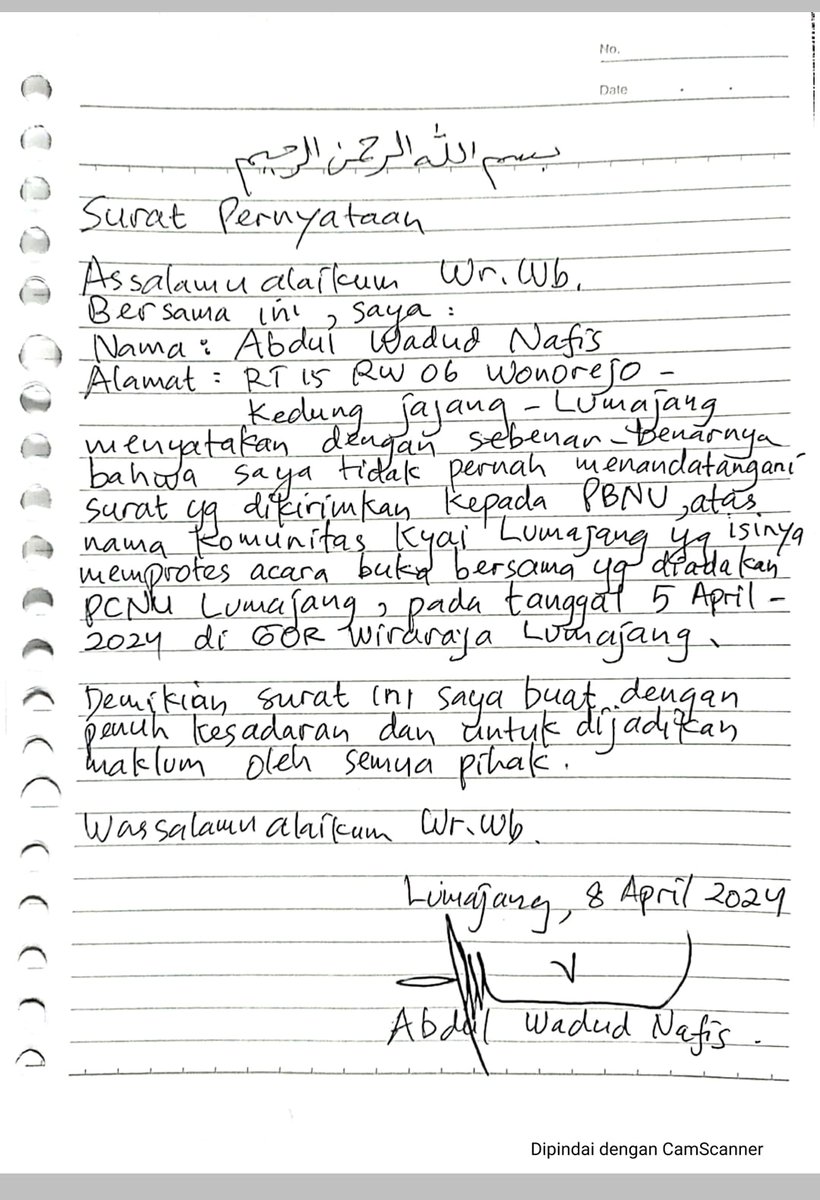 No.
Date
بسم الله الرحمن الرحيم
Surat Pernyataan
Assalamu alaikum Wr. Wb.
Bersama ini, saya :
Nama : Abdul Wadud Nafis
Alamat : RT 15 RW 06 Wonorejo -
Kedung jajang - Lumajang
menyatakan dengan sebenar-benarnya
bahwa saya tidak pernah menandatangani
surat yg dikirimkan kepada PBNU, atas
nama Komunitas Kyai Lumajang yg isinya
memprotes acara buka bersama yg diadakan
PCNU Lumajang, pada tanggal 5 April -
2024 di GOR Wiraraja Lumajang.
Demikian surat ini saya buat dengan
penuh kesadaran dan untuk dijadikan
maklum oleh semua pihak.
Wassalamu alaikum Wr. Wb.
Lumajang, 8 April 2024
Abdul Wadud Nafis.
Dipindai dengan CamScanner